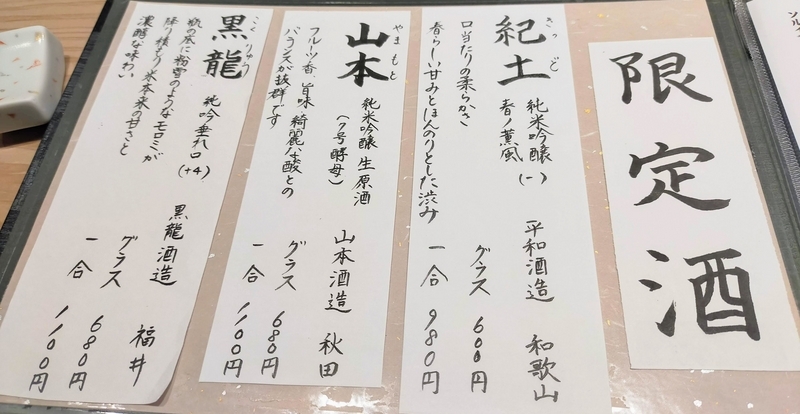 限定酒
きっど
紀土 純米吟醸 春ノ薫風 (-)
口当たりの柔らかさ
春らしい甘みとほんのりとした渋み
平和酒造 和歌山
グラス 600円
一合 980円
やまもと
山本 純米吟醸 生原酒
(7号酵母)
フルーツ香、旨味 綺麗な酸との
バランスが抜群です
山本酒造 秋田
グラス 680円
一合 1,100円
こくりゅう
黒龍 純吟垂れ口 (+4)
瓶の底に粉雪のようなモロミが
降り積もり 米本来の甘さと
濃醇な味わい
黒龍酒造 福井
グラス 680円
一合 1,100円